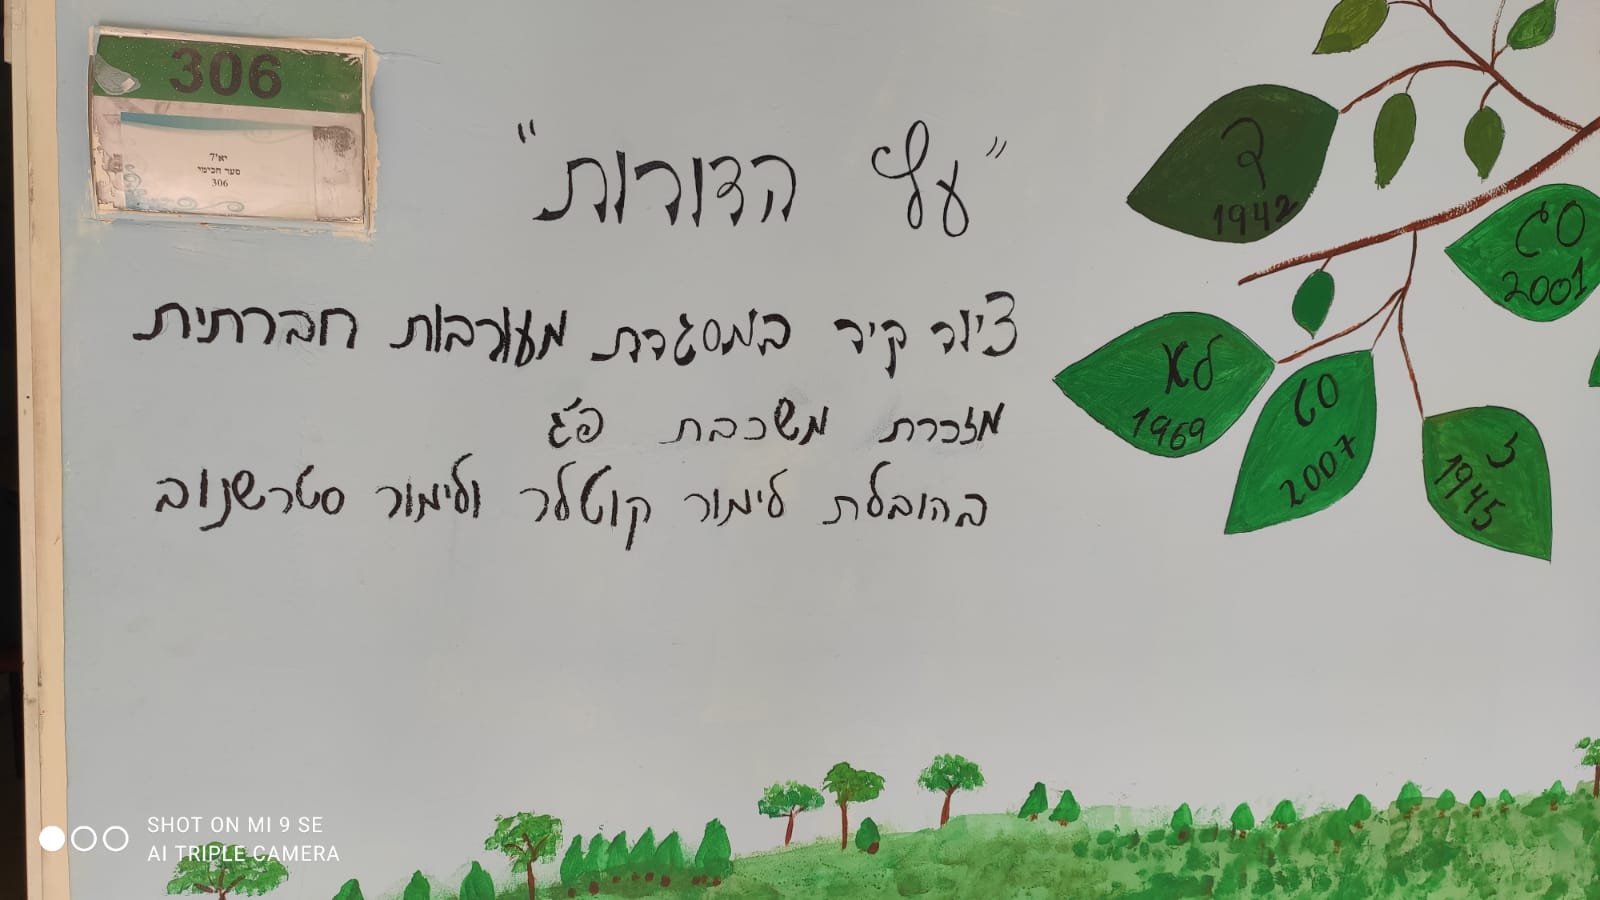 306
יא'7
סער חכימי
306
"עץ הדורות"
ציור קיר במסגרת מעורבות חברתית
מזכרת משכבת פ"ג
בהובלת לימור קוטלר ולימור סטרשנוב
ד
1942
סג
2001
לא
1969
סט
2007
ז
1945
SHOT ON MI 9 SE
AI TRIPLE CAMERA